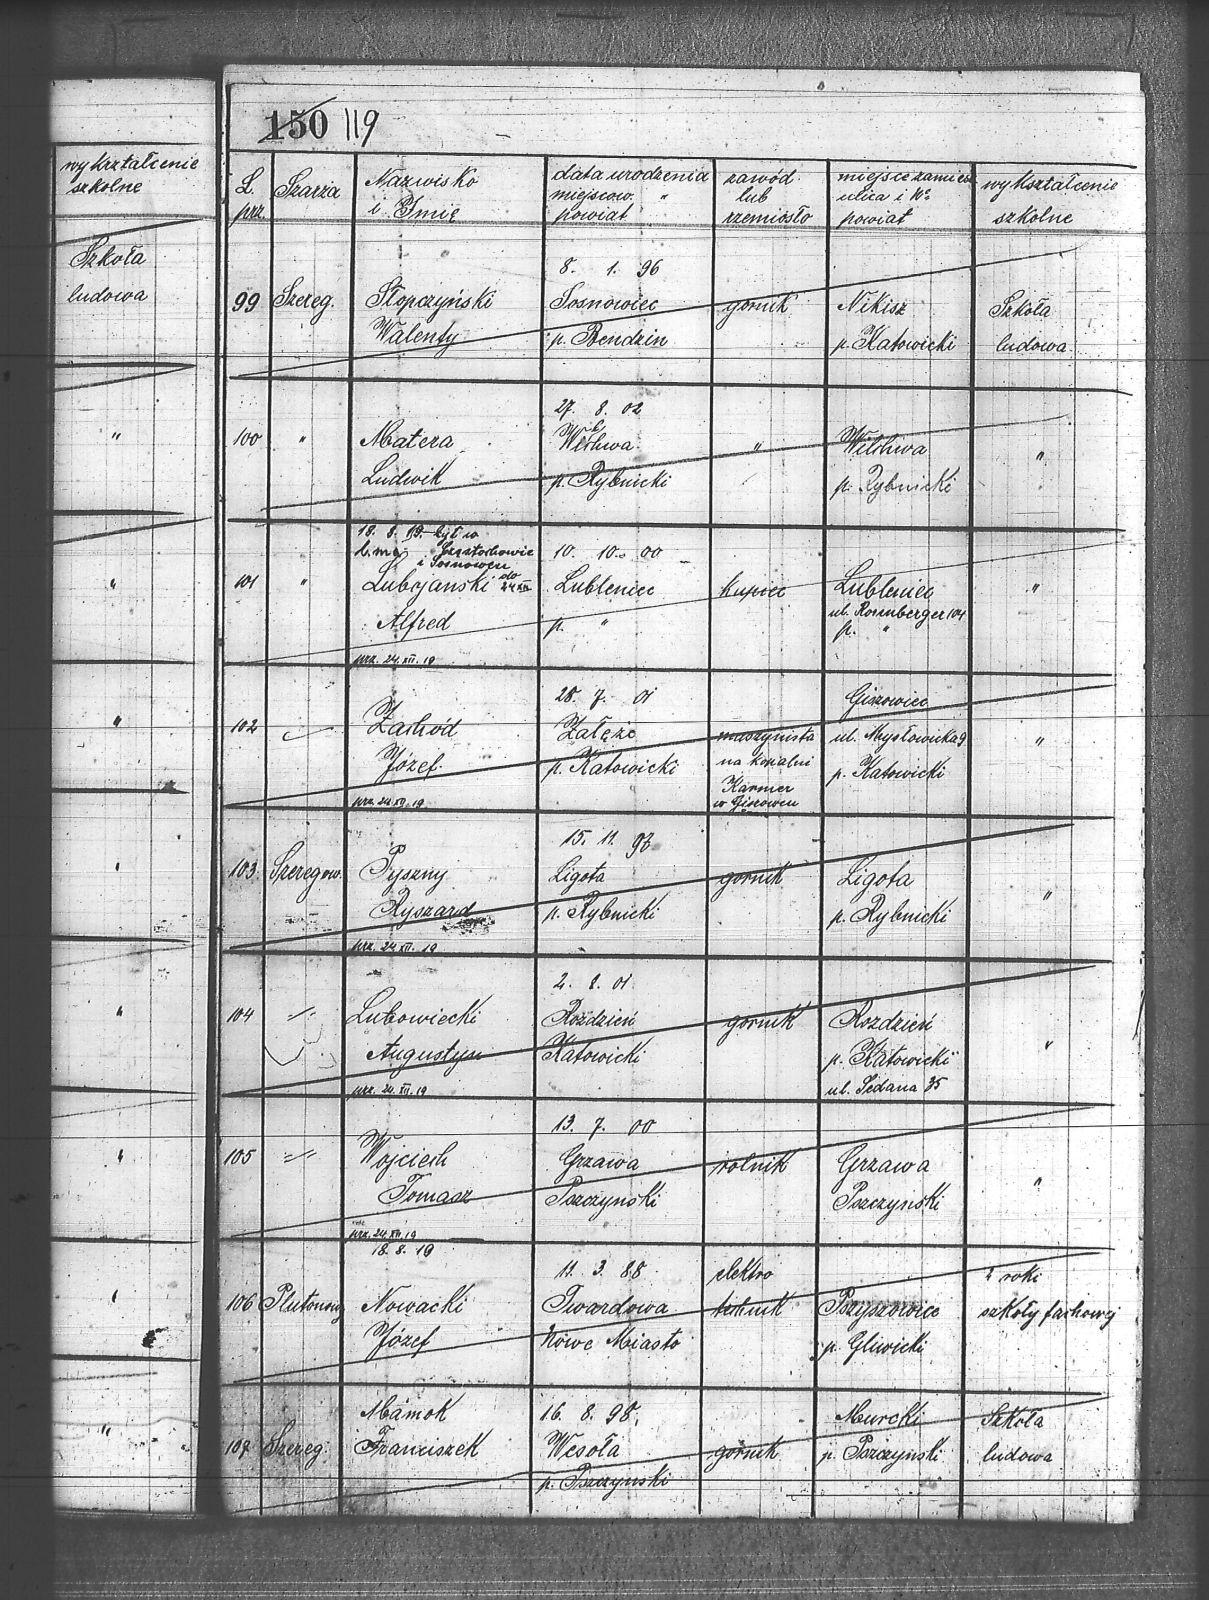 wykształcenie
szkolne
Szkoła
ludowa
"
"
"
"
"
"
"
150 119
L. prz.
Szarża
Nazwisko
i Imię
data urodzenia
miejscow. "
powiat
zawód
lub
rzemiosło
miejsce zamiesz
ulica i No
powiat
wykształcenie
szkolne
8. 1. 96
99 Szereg. Słopczyński Sosnowiec górnik Nikisz Szkoła
Walenty p. Bendzin p. Katowicki ludowa
27. 8. 02
100 " Matera " "
Ludwik p. Rybnicki p. Rybnicki
18. 8. 19 był w
Częstochowie
i Sosnowcu
10. 10. 00
101 " Lubojanski do 24 XII Lubleniec kupiec Lubleniec "
ul. Rosenberger 104
Alfred p. " p. "
prz. 24. XII. 19
28. 7. 01 Giszowiec
102 Zachód Załęże maszynista ul. Mysłowicka 9 "
Józef p. Katowicki na kopalni p. Katowicki
Karmer
w Giszowcu
prz. 24 XII. 19
15. 11. 93
103. Szeregow. Pyszny Ligota górnik Ligota "
Ryszard p. Rybnicki p. Rybnicki
prz. 24 XII. 19
2. 8. 01
104 -"- Lubowiecki Rozdzień górnik Rozdzień
Augustyn Katowicki p. Katowicki "
prz. 24. XII. 19 ul. Sedana 35
13. 7. 00
105 -"- Wojciech Grzawa rolnik Grzawa
Tomasz Pszczynski Pszczynski "
prz. 24 XII. 19
18. 8. 19
11. 3. 88 elektro 2 roki
106 Plutonowy Nowacki Twardowa technik Pszyszowice szkoły fachowej
Józef Nowe Miasto p. Gliwicki
Mamok 16. 8. 98. Murcki Szkoła
107 Szereg. Franciszek Wesoła górnik p. Pszczynski ludowa
p. Pszczynski